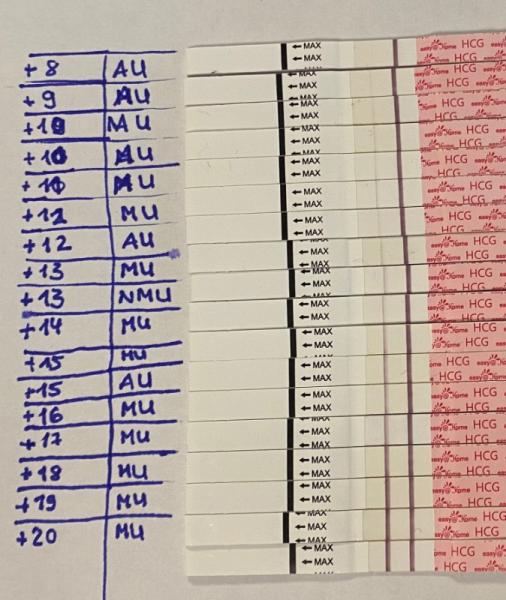 +8 AU ← MAX easy@Home HCG
+9 AU ← MAX easy@Home HCG
+10 MU ← MAX easy@Home HCG
+10 AU ← MAX easy@Home HCG
+11 AU ← MAX easy@Home HCG
+12 MU ← MAX easy@Home HCG
+12 AU ← MAX easy@Home HCG
+13 MU ← MAX easy@Home HCG
+13 NMU ← MAX easy@Home HCG
+14 MU ← MAX easy@Home HCG
+15 MU ← MAX easy@Home HCG
+15 AU ← MAX easy@Home HCG
+16 MU ← MAX easy@Home HCG
+17 MU ← MAX easy@Home HCG
+18 MU ← MAX easy@Home HCG
+19 MU ← MAX easy@Home HCG
+20 MU ← MAX easy@Home HCG